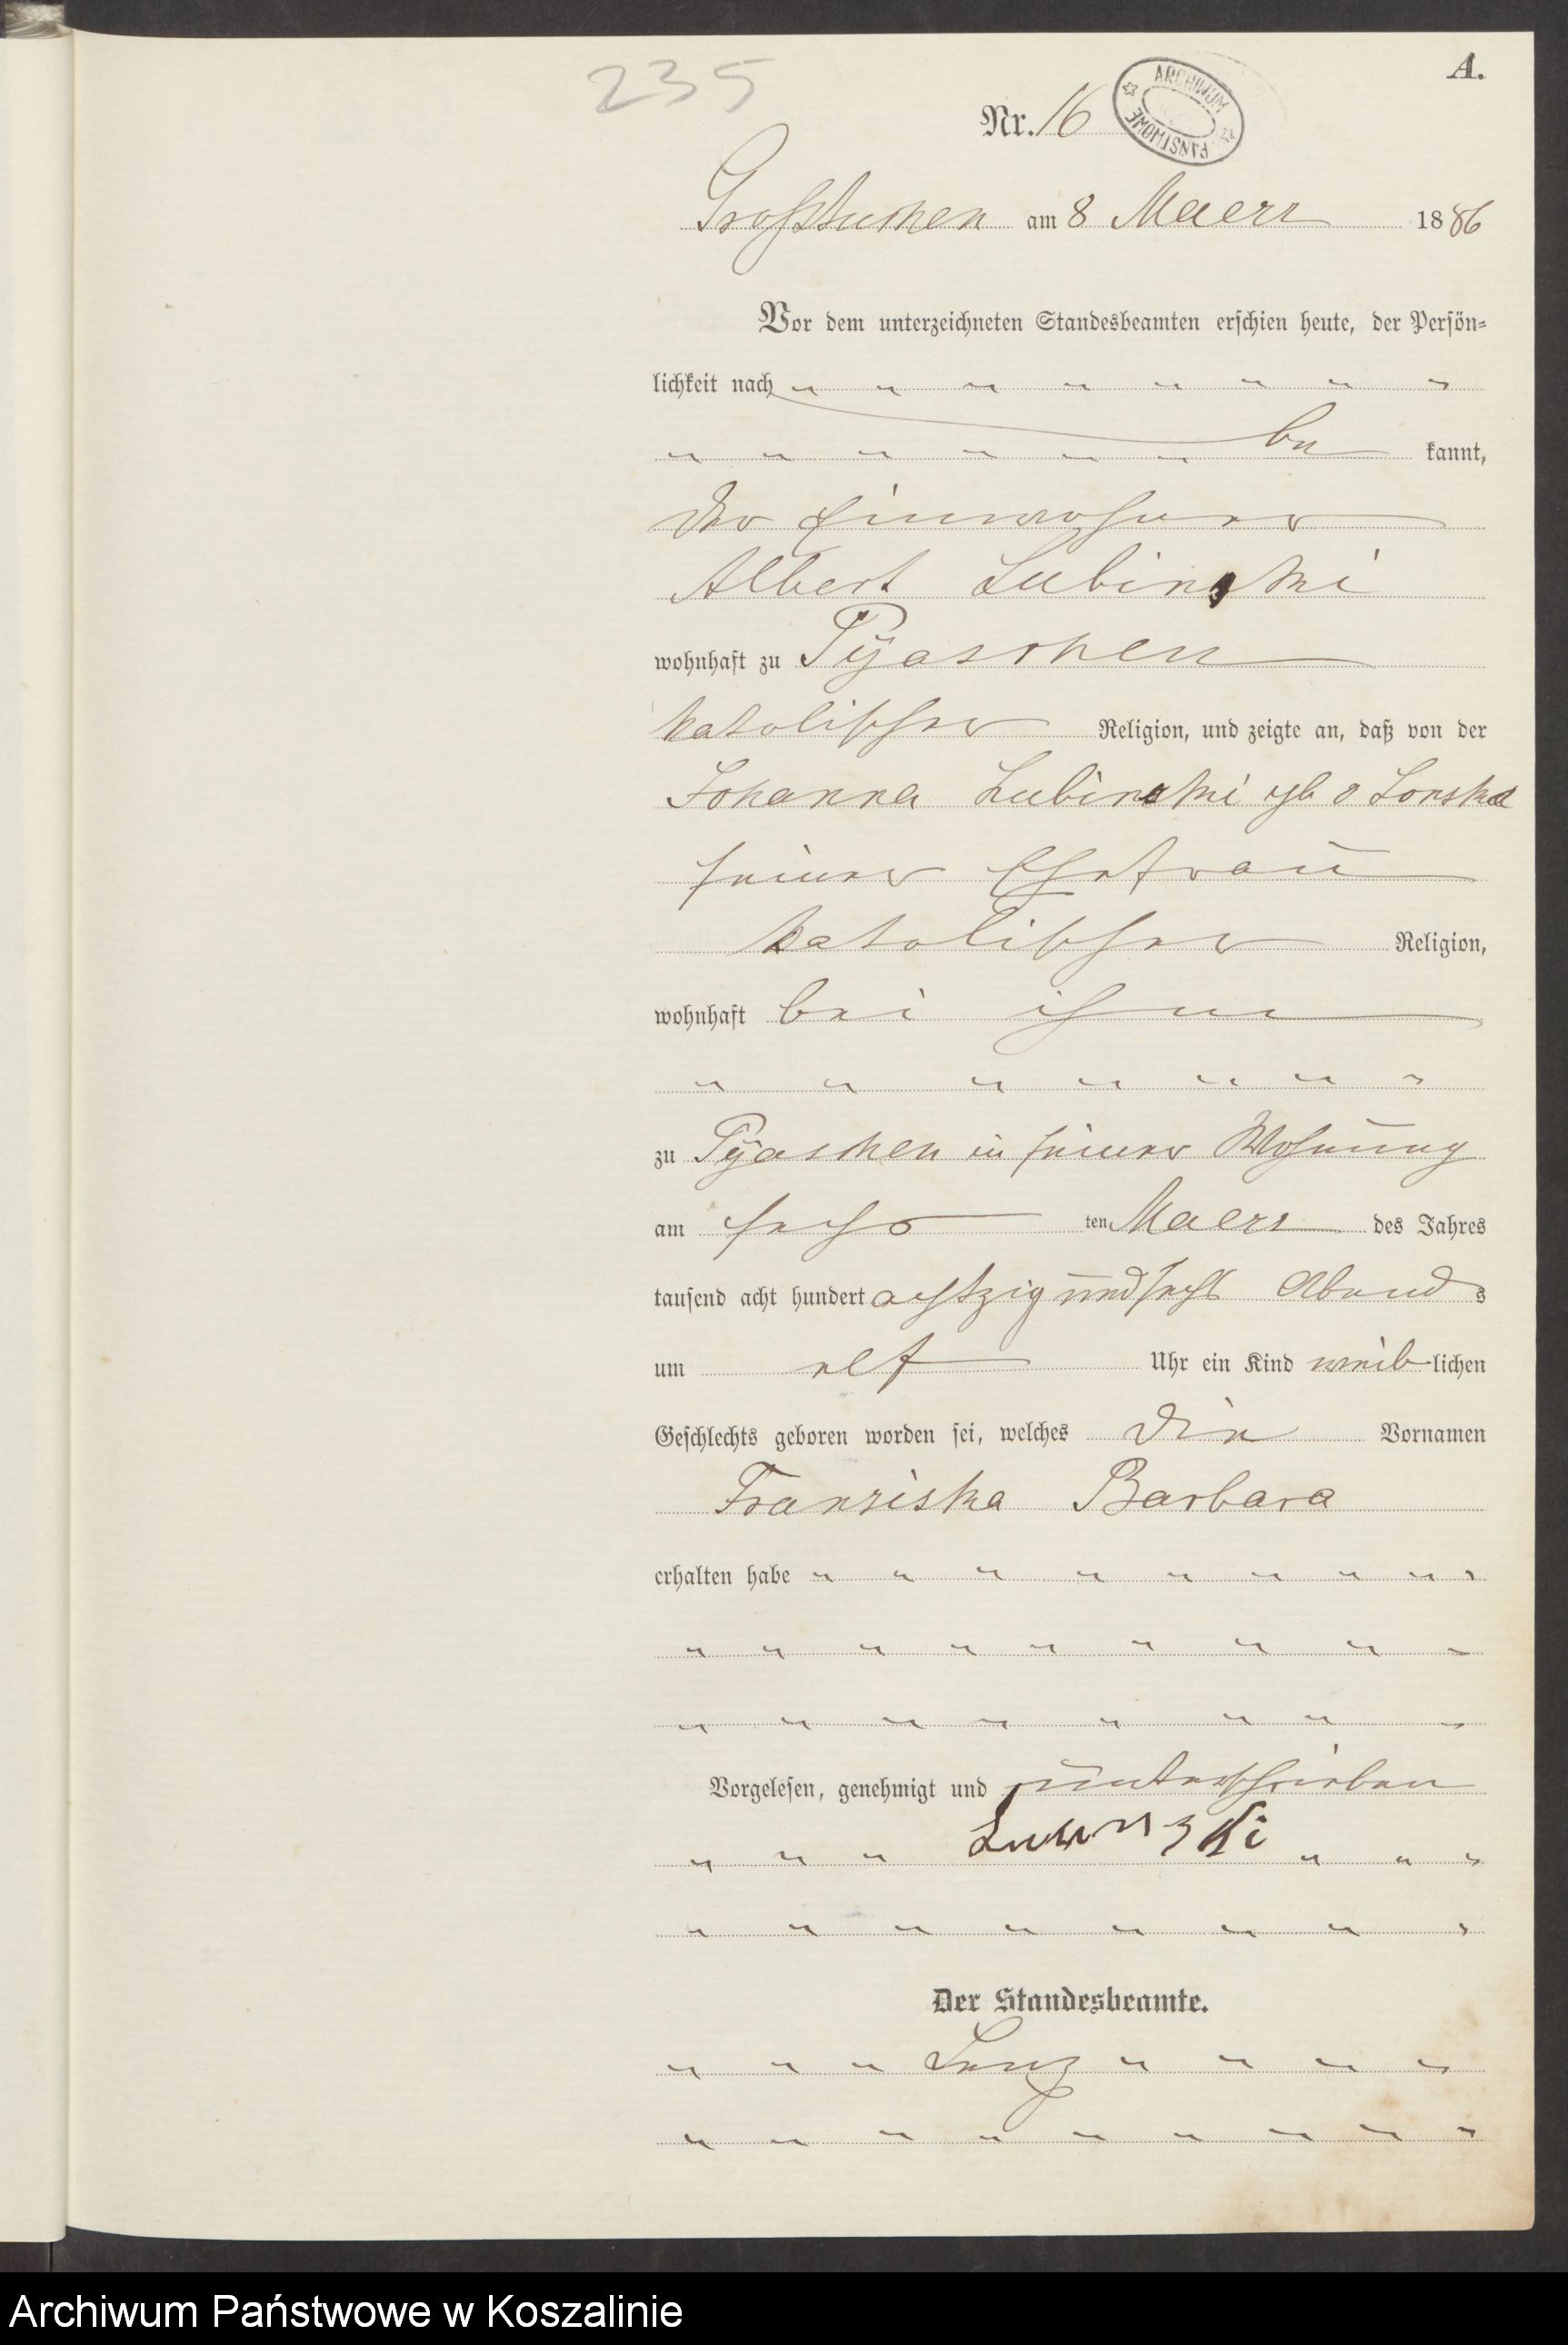 235
A.
Nr. 16
ARCHIWUM PAŃSTWOWE
Großtuchen am 8 Maerz 1886
Vor dem unterzeichneten Standesbeamten erschien heute, der Persön-
lichkeit nach
be kannt,
der Einwohner
Albert Lubinski
wohnhaft zu Pyaschen
katolischer Religion, und zeigte an, daß von der
Johanna Lubinski geb
seiner Ehefrau
katolischer Religion,
wohnhaft bei ihm
zu Pyaschen in seiner Wohnung
am sechs ten Maerz des Jahres
tausend acht hundert achtzig und sechs Abends
um elf Uhr ein Kind weiblichen
Geschlechts geboren worden sei, welches die Vornamen
Franziska Barbara
erhalten habe
Vorgelesen, genehmigt und unterschrieben
Der Standesbeamte.
Lenz
Archiwum Państwowe w Koszalinie